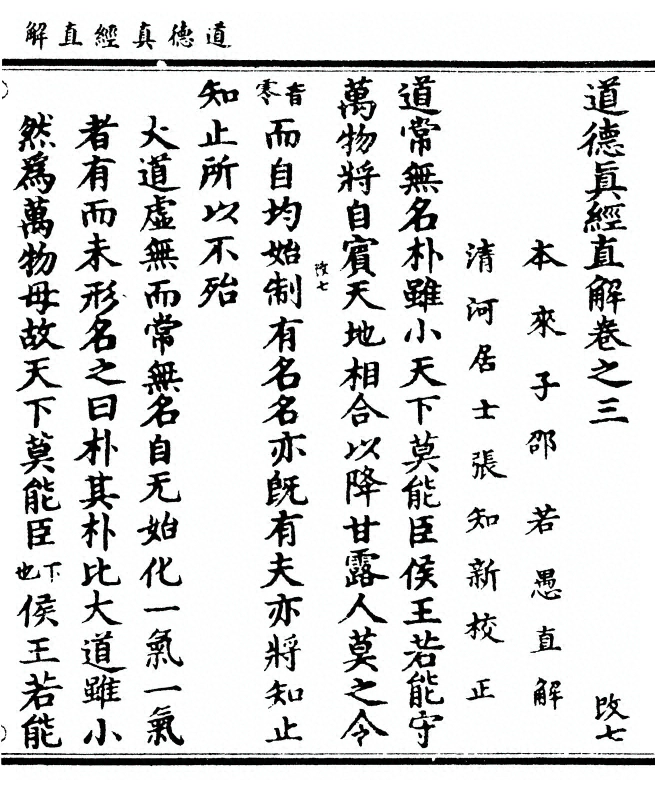 道德真經直解
道德眞經直解卷之三
改七
本來子邵若愚直解
清河居士張知新校正
道常無名朴雖小天下莫能臣侯王若能守
萬物將自賓天地相合以降甘露人莫之令
音零而自均始制有名名亦旣有夫亦將知止
改七
知止所以不殆
大道虛無而常無名自无始化一氣一氣
者有而未形名之曰朴其朴比大道雖小
然爲萬物母故天下莫能臣下也侯王若能